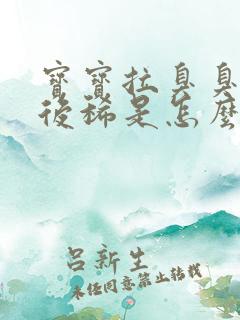 寶寶拉臭臭
後稀是怎麼
呂新生
未經同意禁止轉載